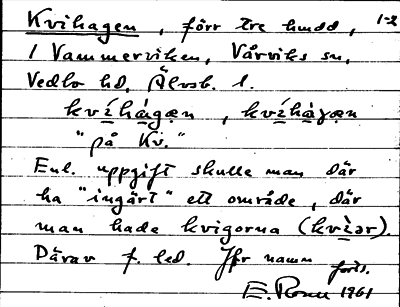 Kvihagen, förr tre hmdd, 1-2
i Vammerviken, Vårviks sn,
Vedbo hd, Älvsb. l.
kvíhàgæn, kvíhàgæn
"på Kv."
Enl. uppgift skulle man där
ha "ingärt" ett område, där
man hade kvigorna (kvìər).
Därav f. led. Jfr namn
forts.
E. 1961